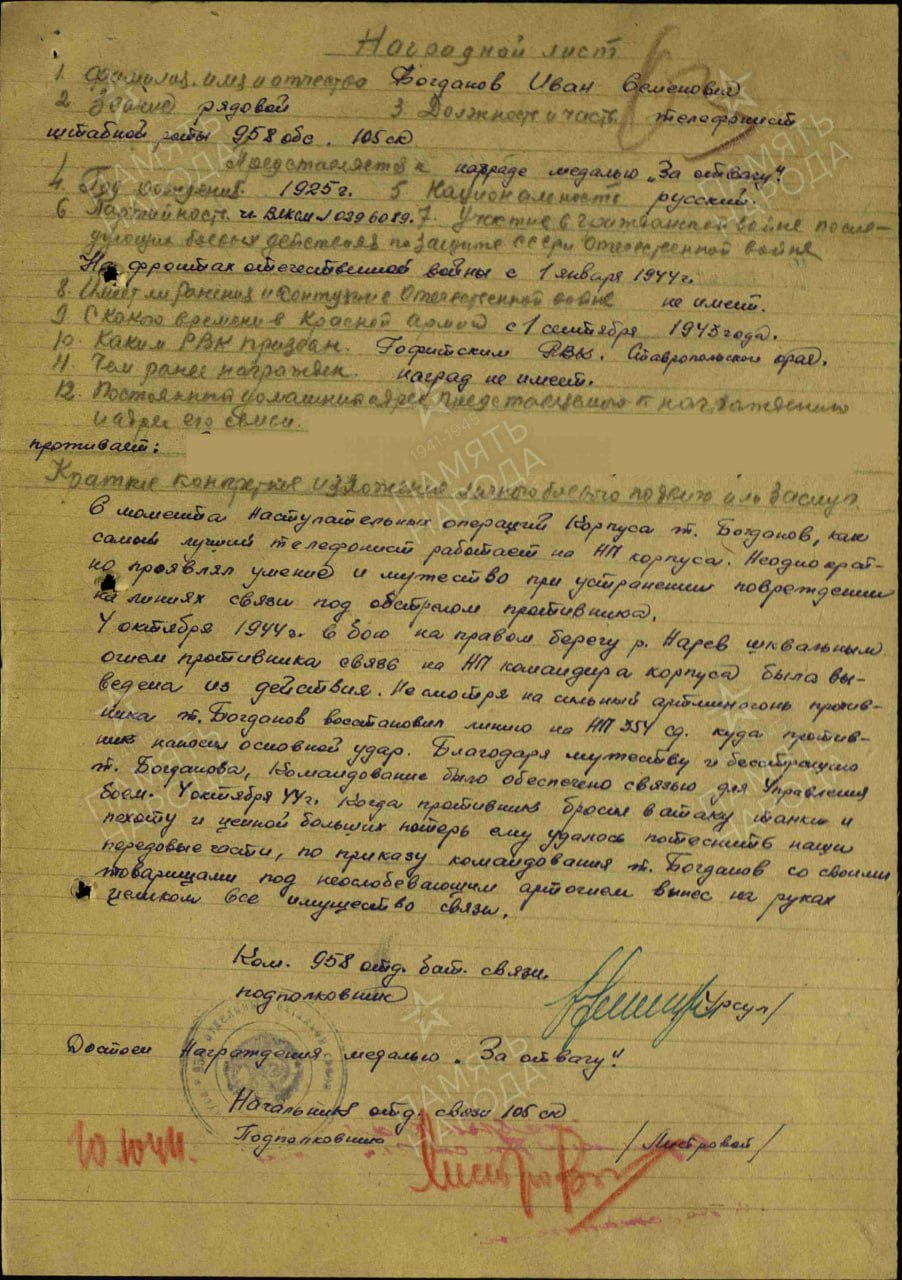 Наградной лист
1. Фамилия, имя и отчество Богданов Иван Семенович
2. Звание рядовой 3 Должность и часть телефонист
штабной роты 958 обс. 105 ск
Представляется к награде медалью „За отвагу".
4. Год рождения 1925 г. 5 Национальность русский.
6 Партийность чл. ВЛКСМ 7. Участие в гражданской войне после-
дующих боевых действиях по защите СССР и Отечественной войне
На фронтах отечественной войны с 1 января 1944 г.
8. Имеет ли ранения и контузии в Отечественной войне не имеет.
9 С какого времени в Красной Армии с 1 сентября 1943 года.
10. Каким РВК призван. РВК. Ставропольского края.
11. Чем ранее награжден. наград не имеет.
12. Постоянный домашний адрес представляемого к награждению
и адрес его семьи.
проживает:
Краткое конкретное изложение личного боевого подвига или заслуг
В момента наступательных операций Корпуса т. Богданов, как
самый лучший телефонист работает на НП корпуса. Неоднократ-
но проявлял умение и мужество при устранении повреждении
на линиях связи под обстрелом противника.
4 октября 1944 г. в бою на правом берегу р. Нарев шквальным
огнем противника связь на НП командира корпуса была вы-
ведена из действия. Несмотря на сильный артминогонь против-
ника т. Богданов восстановил линию на НП 354 сд. куда против-
ник наносил основной удар. Благодаря мужеству и бесстрашию
т. Богданова, Командование было обеспечено связью для Управления
боем. 4 октября 44 г. Когда противник бросил в атаку танки и
пехоту и ценной больших потерь ему удалось потеснить наши
передовые части, по приказу командования т. Богданов со своими
товарищами под неослобевающим артогнем вынес на руках
целиком все имущество связи.
Ком. 958 отд. бат. связи
подполковник /Урсул/
Достоен Награждения медалью „За отвагу"
Начальник отд. связи 105 ск
Подполковник /Листровой/
10.10.44.
ПАМЯТЬ
НАРОДА
1941-1945